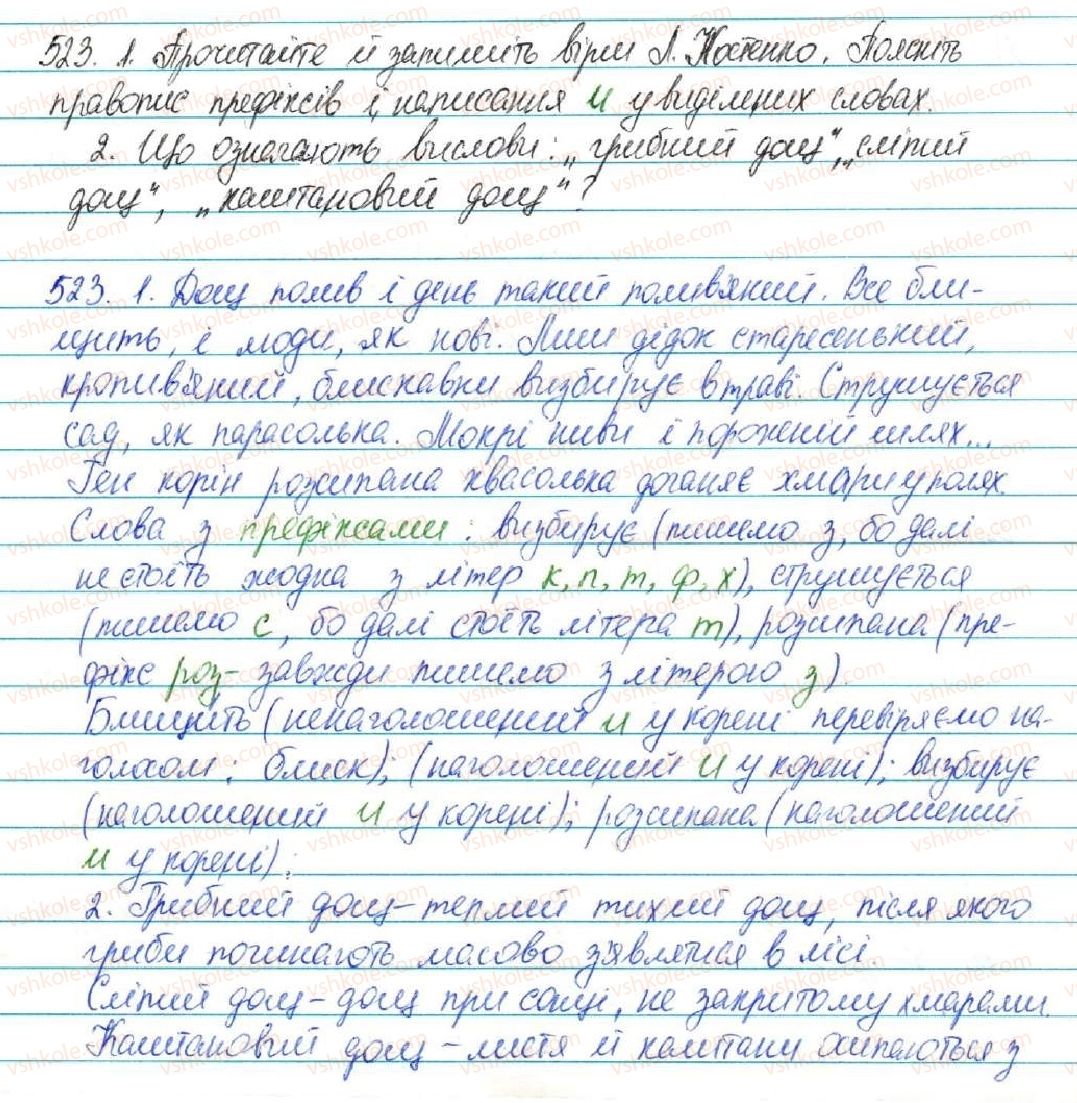 523. 1. Прочитайте й запишіть вірш Л. Костенко. Поясніть
правопис префіксів і написання и у виділених словах.
2. Що означають вислови: „грибний дощ", „сліпий
дощ", „каштановий дощ"?
523. 1. Дощ полив і день такий полив'яний. Все бли-
щить, і люди, як нові. Лиш дідок старесенький,
кропив'яний, блискавки визбирує в траві. Струшується
сад, як парасолька. Мокрі ниви і порожній шлях...
Ген корів розсипана квасолька доганяє хмари у полях.
Слова з префіксами: визбирує (пишемо з, бо далі
не стоїть жодна з літер к, п, т, ф, х), струшується
(пишемо с, бо далі стоїть літера т), розсипана (пре-
фікс роз- завжди пишемо з літерою з).
Блищить (ненаголошений и у корені перевіряємо на-
голосом: блиск); (наголошений и у корені); визбирує
(наголошений и у корені); розсипана (наголошений
и у корені).
2. Грибний дощ – теплий тихий дощ, після якого
гриби починають масово з'являтися в лісі.
Сліпий дощ – дощ при сонці, не закритому хмарами.
Каштановий дощ – листя й каштани осипаються з